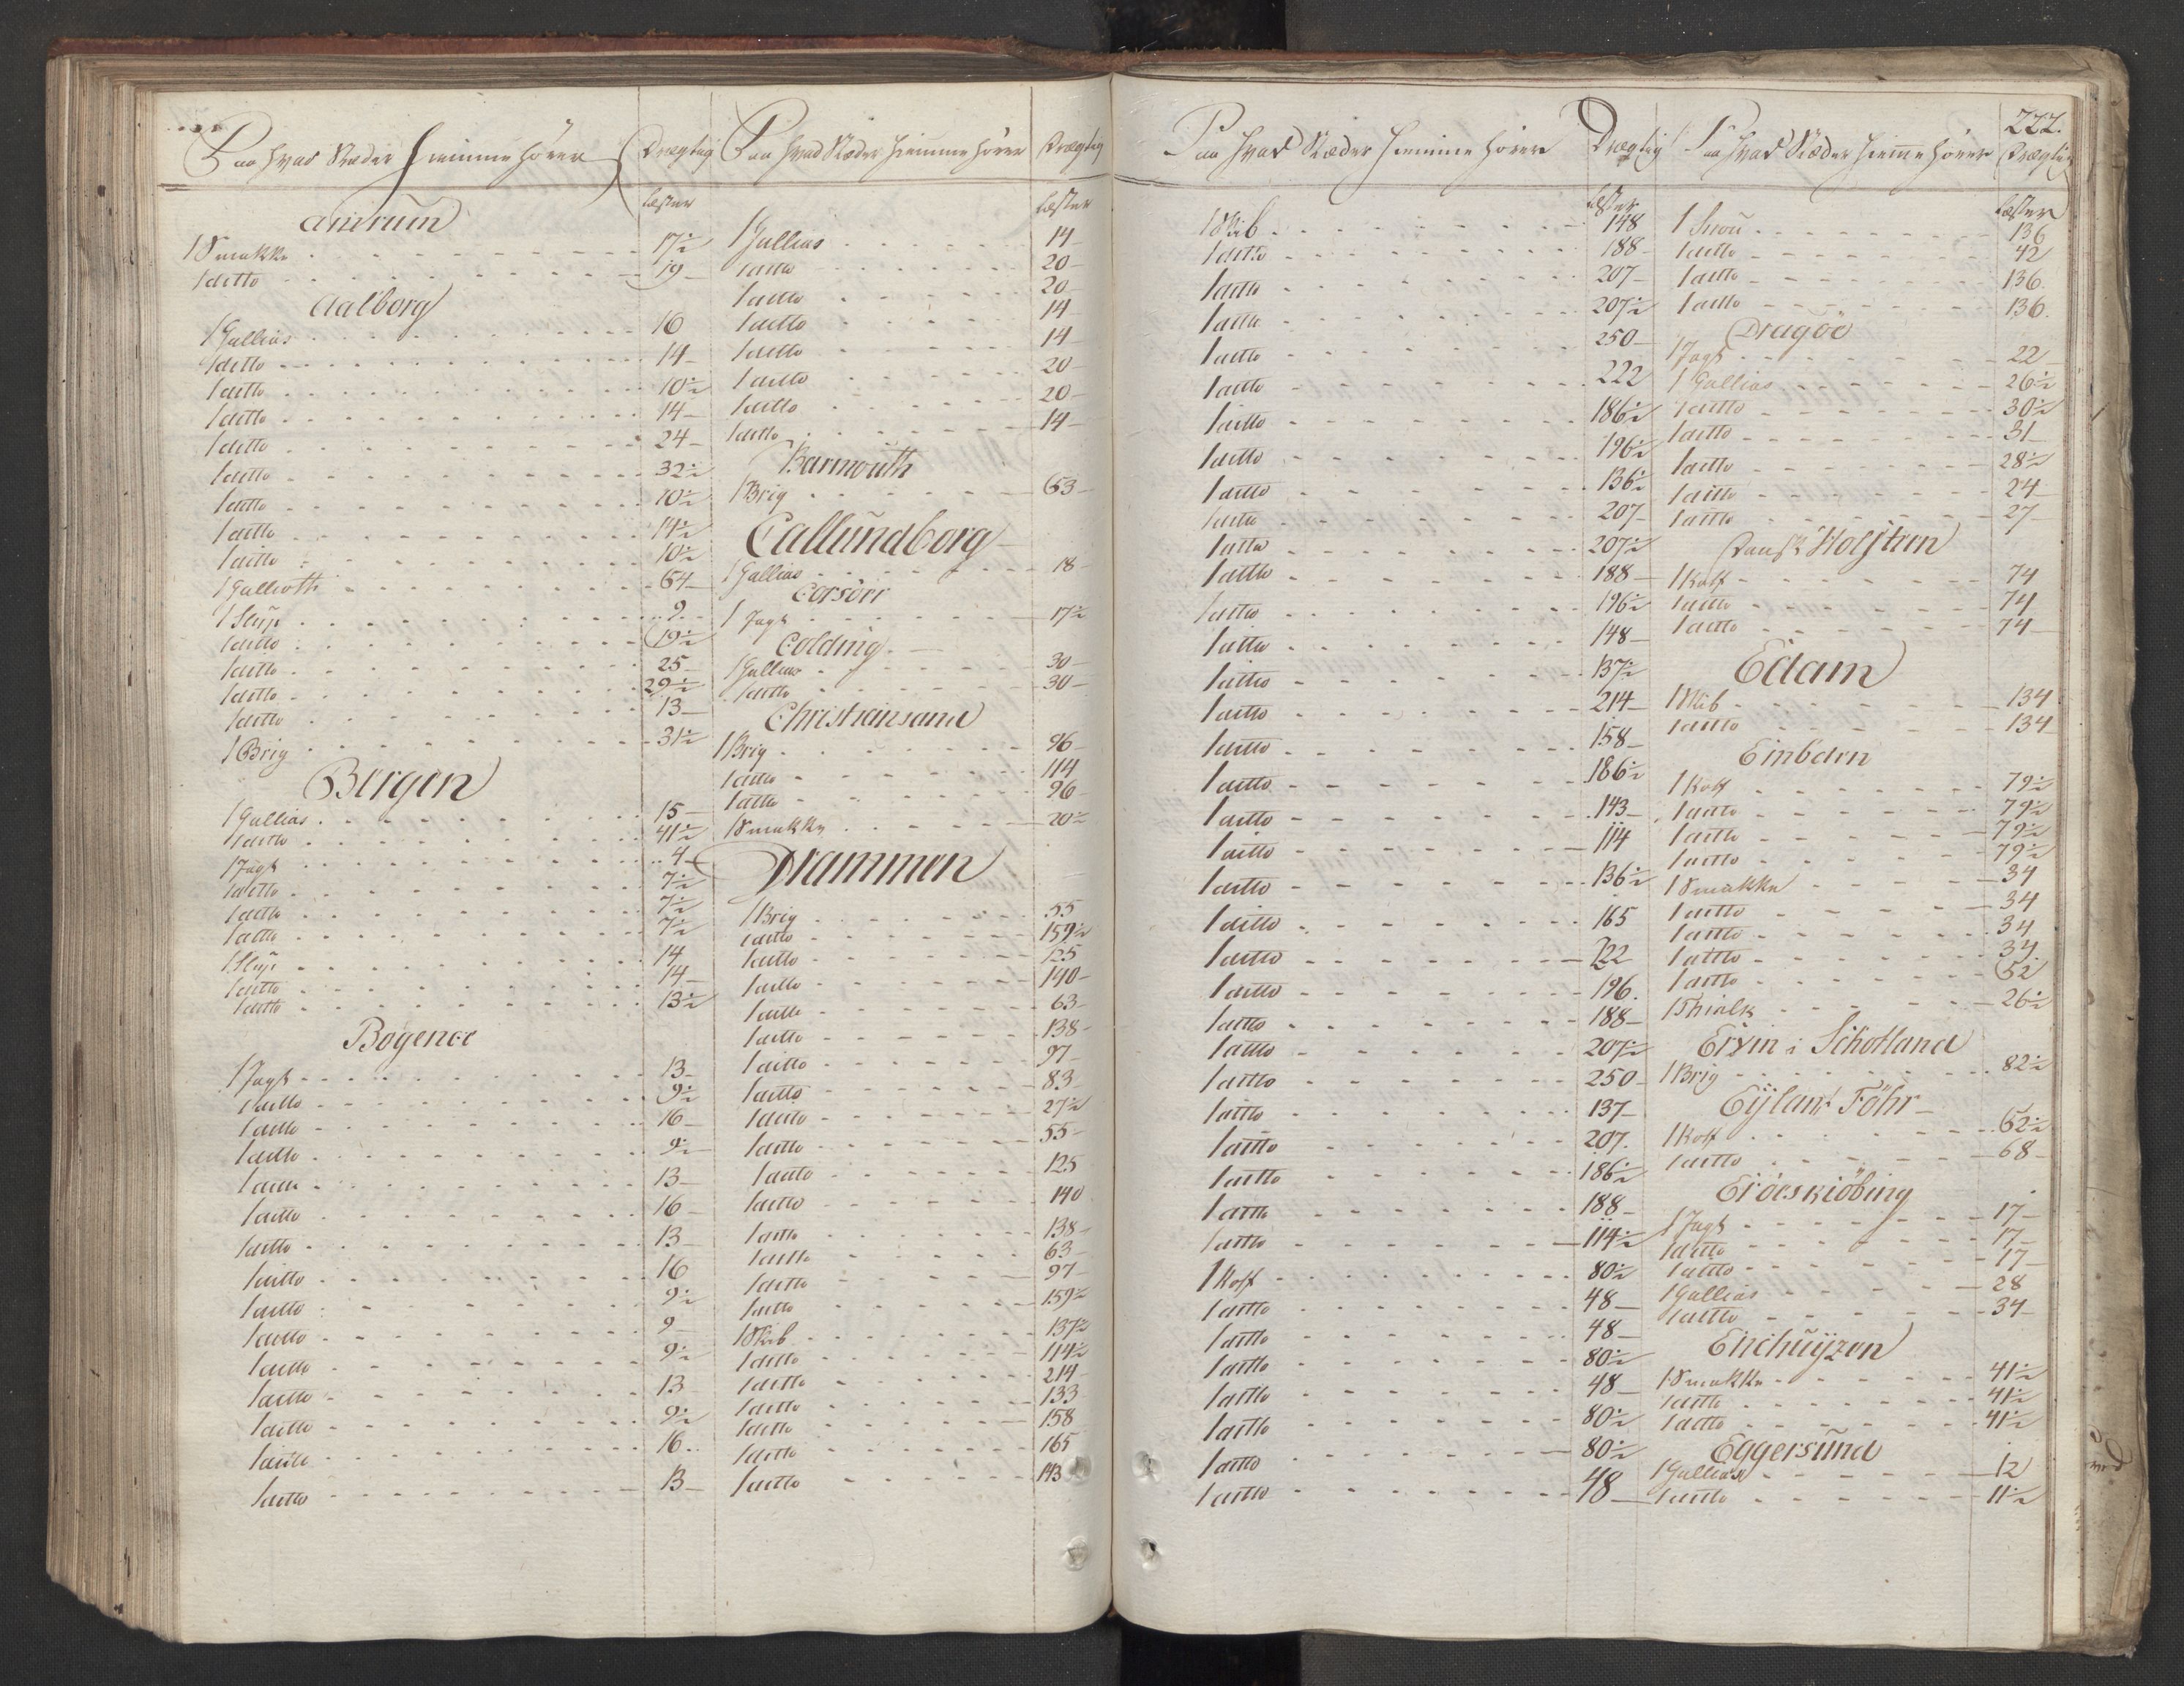 Paa hvad Stæder hiemme hører Drægtig
Læster
Amrum
1 Smakke 17½
1 ditto 19
Aalborg
1 Gallias 16
1 ditto 14
1 ditto 10½
1 ditto 14
1 ditto 24
1 ditto 32½
1 ditto 10½
1 ditto 14½
1 ditto 10½
1 Galliotte 64
1 Slup 9
1 ditto 19½
1 ditto 25
1 ditto 29½
1 ditto 13
1 Brig 31½
Bergen
1 Gallias 15
1 ditto 41½
1 Jagt 4
1 ditto 7½
1 ditto 7½
1 ditto 7½
1 Slup 14
1 ditto 14
1 ditto 13½
Bogense
1 Jagt 13
1 ditto 9½
1 ditto 16
1 ditto 9½
1 ditto 13
1 ditto 16
1 ditto 13
1 ditto 16
1 ditto 9½
1 ditto 9
1 ditto 9½
1 ditto 13
1 ditto 9½
1 ditto 16
1 ditto 13
Paa hvad Stæder hiemme hører Drægtig
Læster
1 Gallias 14
1 ditto 20
1 ditto 20
1 ditto 14
1 ditto 14
1 ditto 20
1 ditto 20
1 ditto 14
Barmouth
1 Brig 63
Callundborg
1 Gallias 18
Corsörr
1 Jagt 17½
Colding
1 Gallias 30
1 ditto 30
Christiansand
1 Brig 96
1 ditto 114
1 ditto 96
1 Smakke 20½
Drammen
1 Brig 55
1 ditto 159½
1 ditto 125
1 ditto 140
1 ditto 63
1 ditto 138
1 ditto 97
1 ditto 83
1 ditto 27½
1 ditto 55
1 ditto 125
1 ditto 140
1 ditto 138
1 ditto 63
1 ditto 97
1 ditto 159½
1 Skib 137½
1 ditto 114½
1 ditto 214
1 ditto 133
1 ditto 158
1 ditto 165
1 ditto 143
Paa hvad Stæder hiemme hører Drægtig
Læster
1 Skib 148
1 ditto 188
1 ditto 207
1 ditto 207½
1 ditto 250
1 ditto 222
1 ditto 186½
1 ditto 196½
1 ditto 136½
1 ditto 207
1 ditto 207½
1 ditto 188
1 ditto 196½
1 ditto 148
1 ditto 137½
1 ditto 214
1 ditto 158
1 ditto 186½
1 ditto 143
1 ditto 114
1 ditto 136½
1 ditto 165
1 ditto 122
1 ditto 196
1 ditto 188
1 ditto 207½
1 ditto 250
1 ditto 137
1 ditto 207
1 ditto 186½
1 ditto 188
1 ditto 114½
1 Koff 80½
1 ditto 48
1 ditto 48
1 ditto 80½
1 ditto 48
1 ditto 80½
1 ditto 80½
1 ditto 48
222.
Paa hvad Stæder hieme hører Drægtig
Læster
1 Snou 136
1 ditto 42
1 ditto 136
1 ditto 136
Dragöe
1 Jagt 22
1 Gallias 26½
1 ditto 30½
1 ditto 31
1 ditto 28½
1 ditto 24
1 ditto 27
Dansk Holsteen
1 Koff 74
1 ditto 74
1 ditto 74
Edam
1 Skib 134
1 ditto 134
Embden
1 Koff 79½
1 ditto 79½
1 ditto 79½
1 ditto 79½
1 Smakke 34
1 ditto 34
1 ditto 34
1 ditto 34
1 ditto 52
1 Thialk 26½
i Schotland
1 Brig 82½
Eyland Föhr
1 Koff 62½
1 ditto 68
Eröeskiöbing
1 Jagt 17
1 ditto 17
1 ditto 17
1 Gallias 28
1 ditto 34
Enchuyzen
1 Smakke 41½
1 ditto 41½
1 ditto 41½
Eggersund
1 Gallias 12
1 ditto 11½